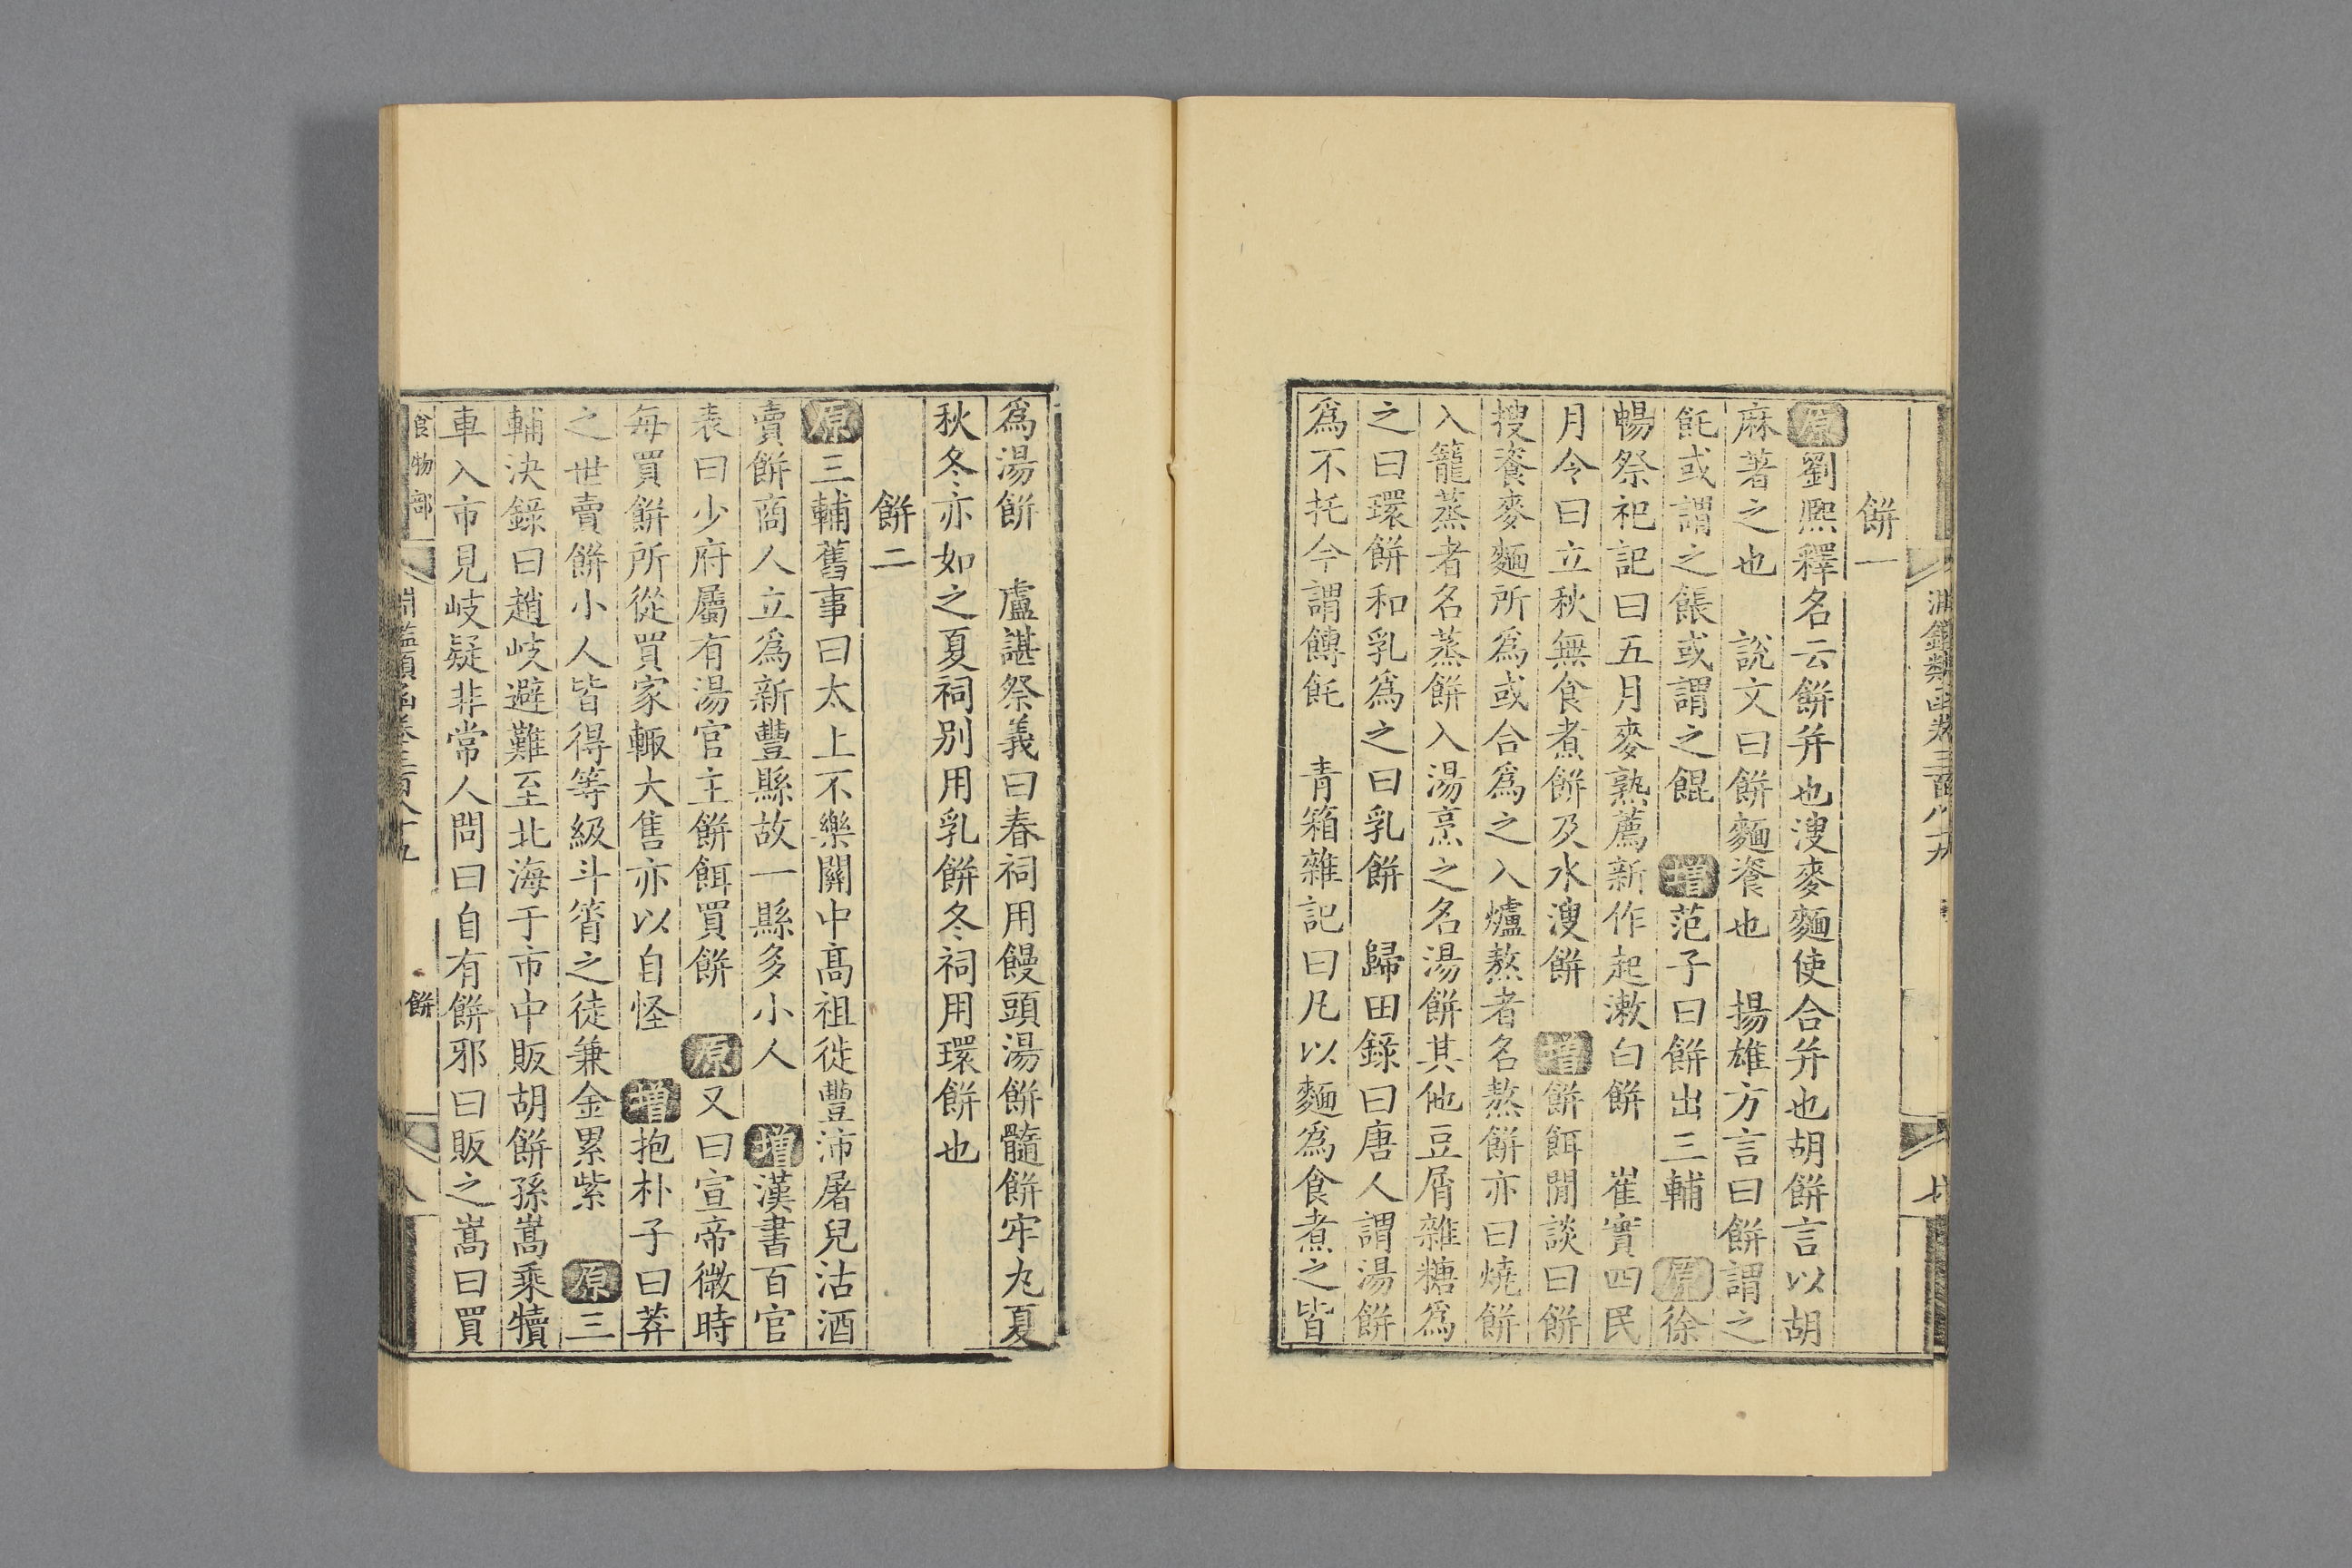 餅一
原劉熈釋名云餅并也溲麥麵使合并也胡餅言以胡
麻著之也　說文曰餅麵餈也　揚雄方言曰餅謂之
飥或謂之餦或謂之餛　增范子曰餅出三輔　原徐
暢祭祀記曰五月麥熟薦新作起漱白餅　崔寔四民
月令曰立秋無食煮餅及水溲餅　增餅餌閒談曰餅
搜餈麥麵所爲或合爲之入爐熬者名熬餅亦曰燒餅
入籠蒸者名蒸餅入湯烹之名湯餅其他豆屑雜糖爲
之曰環餅和乳爲之曰乳餅　歸田錄曰唐人謂湯餅
爲不托今謂餺飥　青箱雜記曰凡以麵爲食煮之皆
爲湯餅　盧諶祭義曰春祠用饅頭湯餅髓餅牢丸夏
秋冬亦如之夏祠别用乳餅冬祠用環餅也
餅二
原三輔舊事曰太上不樂關中高祖徙豐沛屠兒沽酒
賣餅商人立爲新豐縣故一縣多小人　增漢書百官
表曰少府屬有湯官主餅餌買餅　原又曰宣帝微時
每買餅所從買家輙大售亦以自怪　增抱朴子曰莽
之世賣餅小人皆得等級斗筲之徒兼金累紫　原三
輔決錄曰趙岐避難至北海于市中販胡餅孫嵩乘犢
車入市見岐疑非常人問曰自有餅邪曰販之嵩曰買
食物部
餅